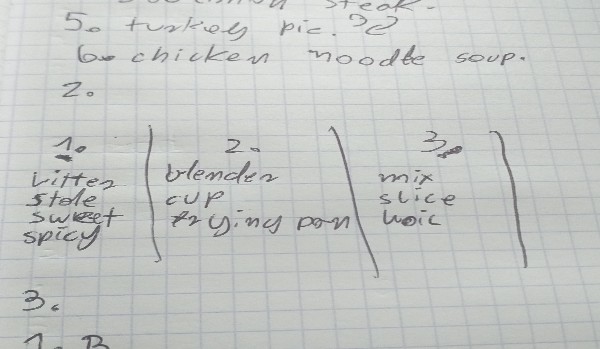 steak.
5. turkey pie.
6. chicken noodle soup.
2.
1. 2. 3.
bitter blender mix
stale cup slice
sweet frying pan
spicy
3.
1. B